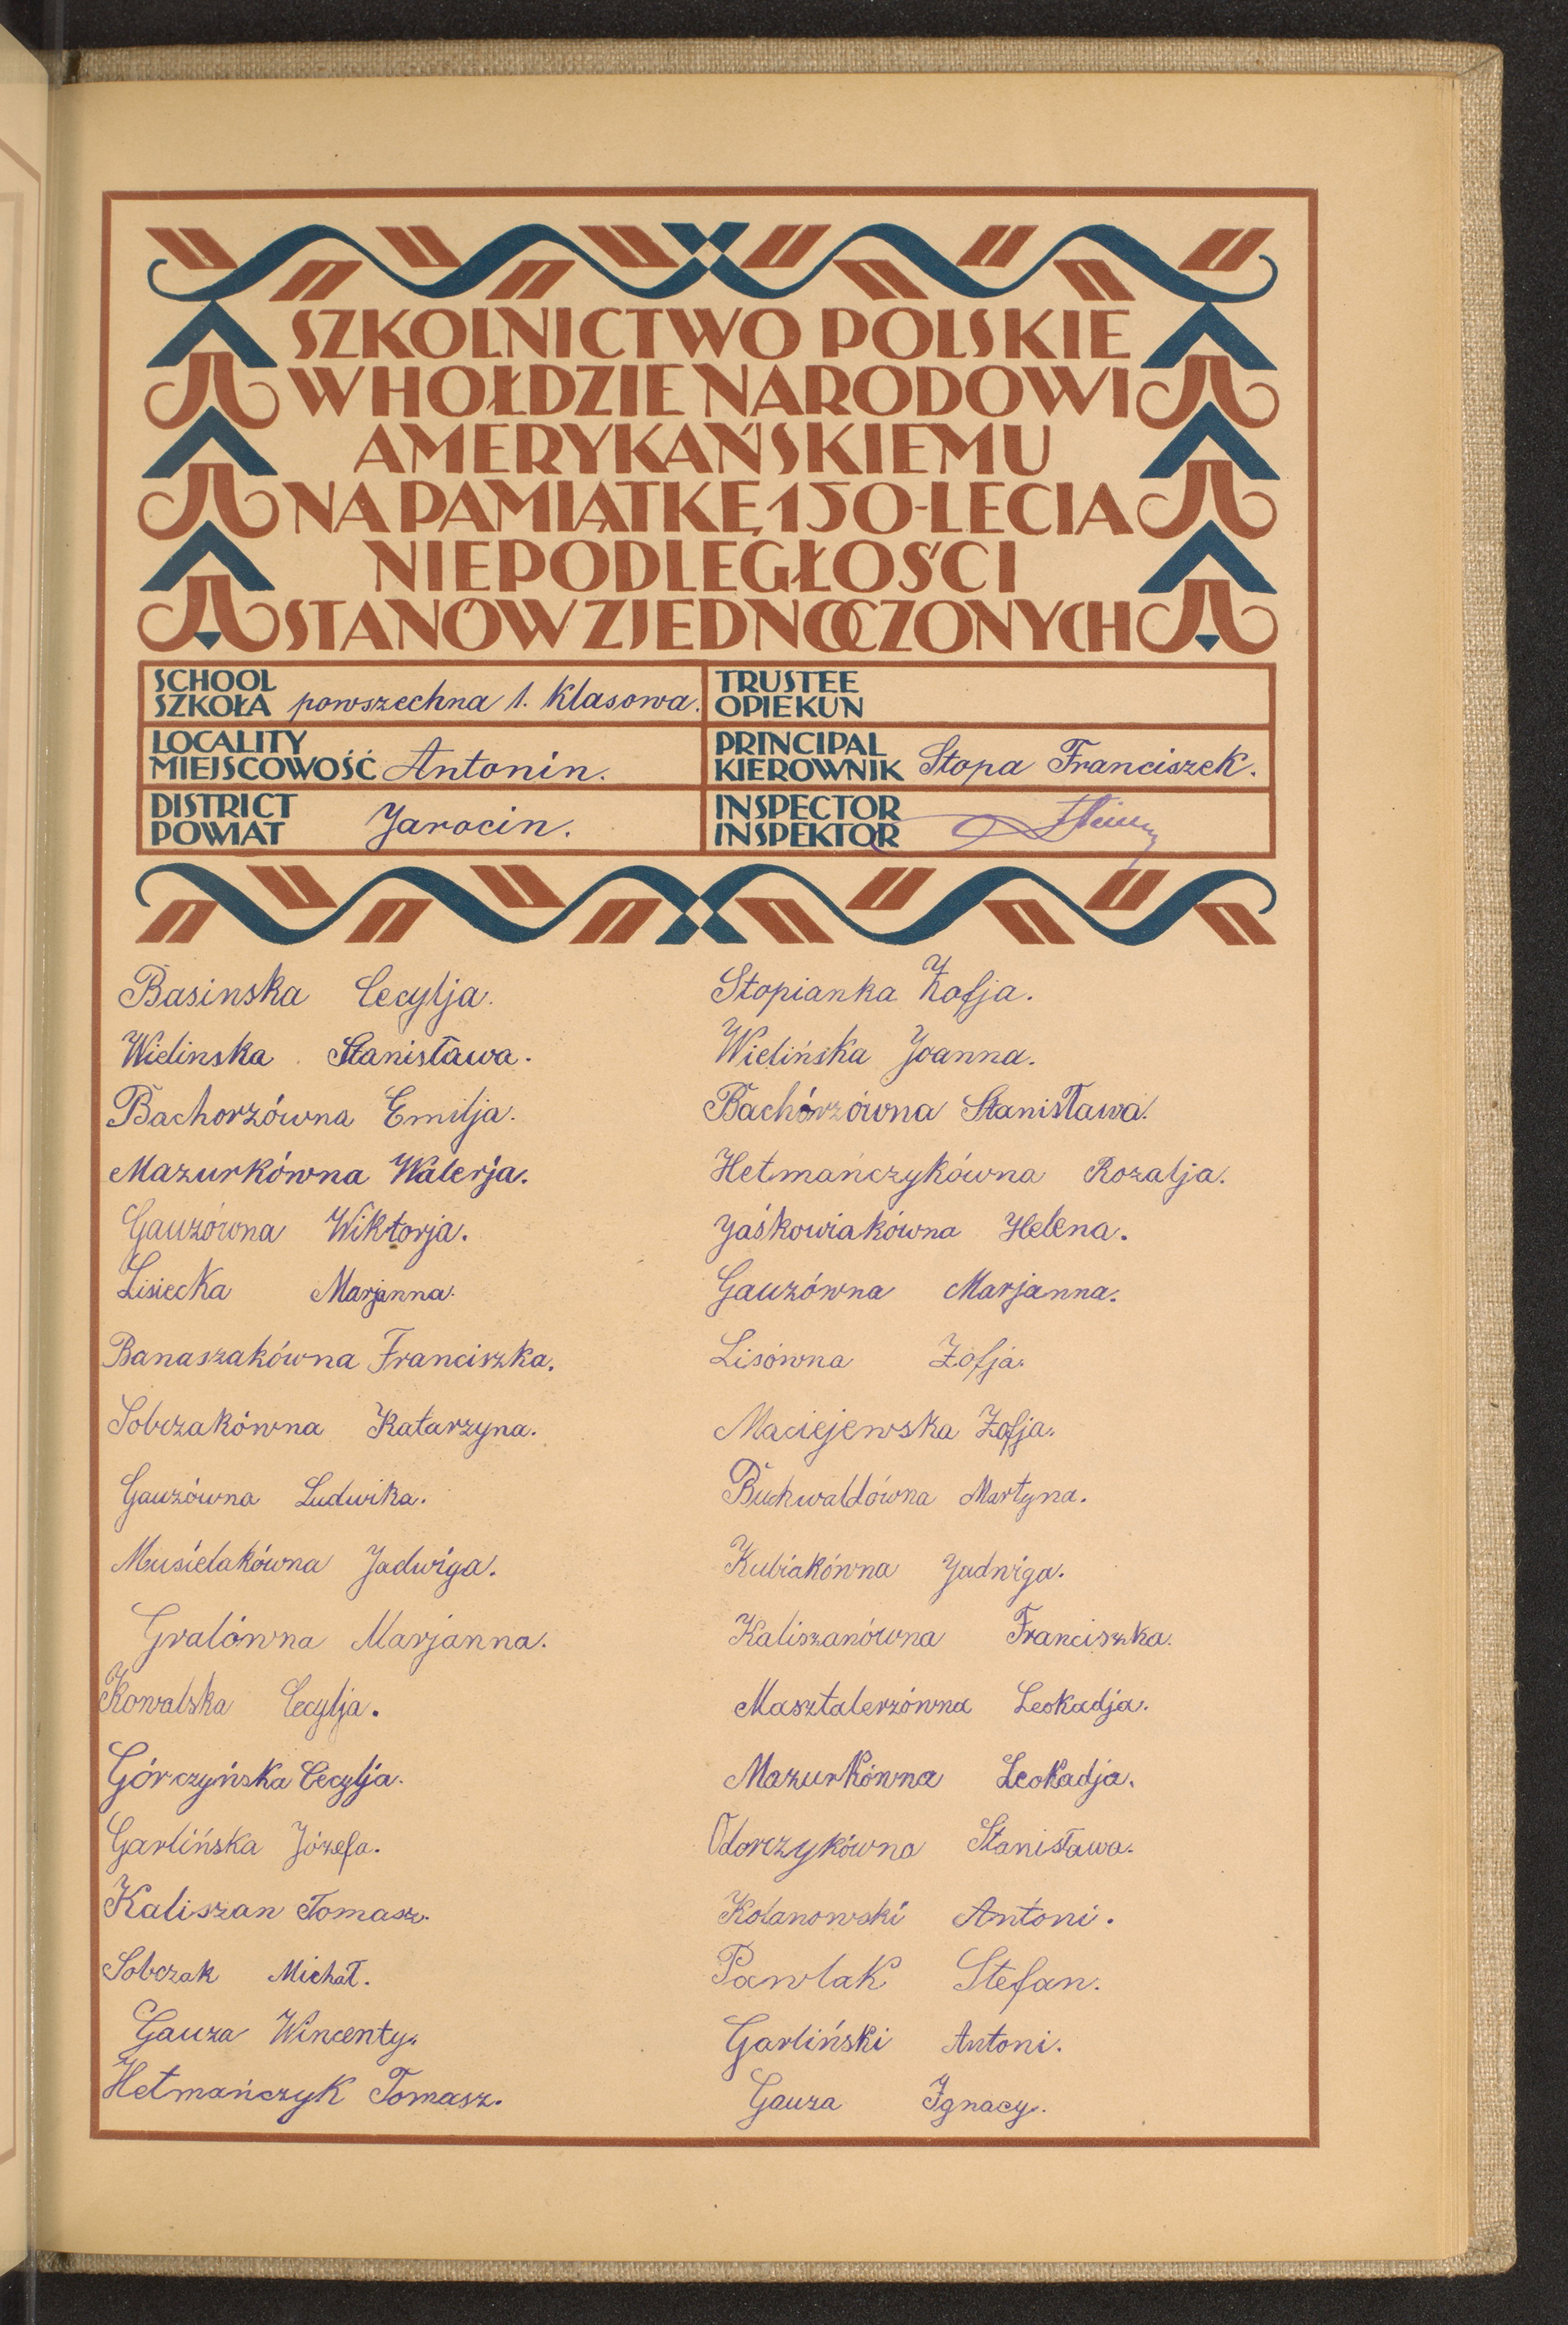 SZKOLNICTWO POLSKIE
W HOŁDZIE NARODOWI
AMERYKAŃSKIEMU
NA PAMIĄTKĘ 150-LECIA
NIEPODLEGŁOŚCI
STANÓW ZJEDNOCZONYCH
SCHOOL
SZKOŁA powszechna 1. klasowa.
TRUSTEE
OPIEKUN
LOCALITY
MIEJSCOWOŚĆ Antonin.
PRINCIPAL
KIEROWNIK Stopa Franciszek.
DISTRICT
POWIAT Jarocin.
INSPECTOR
INSPEKTOR
Basinska Cecylja.
Wielinska Stanisława.
Bachorzówna Emilja.
Mazurkówna Walerja.
Gauzówna Wiktorja.
Lisiecka Marjanna.
Banaszakówna Franciszka.
Sobczakówna Katarzyna.
Gauzówna Ludwika.
Musielakówna Jadwiga.
Gralówna Marjanna.
Kowalska Cecylja.
Górczyńska Cecylja.
Garlińska Józefa.
Kaliszan Tomasz.
Sobczak Michał.
Gauza Wincenty.
Hetmańczyk Tomasz.
Stopianka Zofja.
Wielińska Joanna.
Bachórzówna Stanisława.
Hetmańczykówna Rozalja.
Jaśkowiakówna Helena.
Gauzówna Marjanna.
Lisówna Zofja.
Maciejewska Zofja.
Buchwaldówna Martyna.
Kubiakówna Jadwiga.
Kaliszanówna Franciszka.
Masztalerzówna Leokadja.
Mazurkówna Leokadja.
Odorczykówna Stanisława.
Kolanowski Antoni.
Pawlak Stefan.
Garliński Antoni.
Gauza Ignacy.